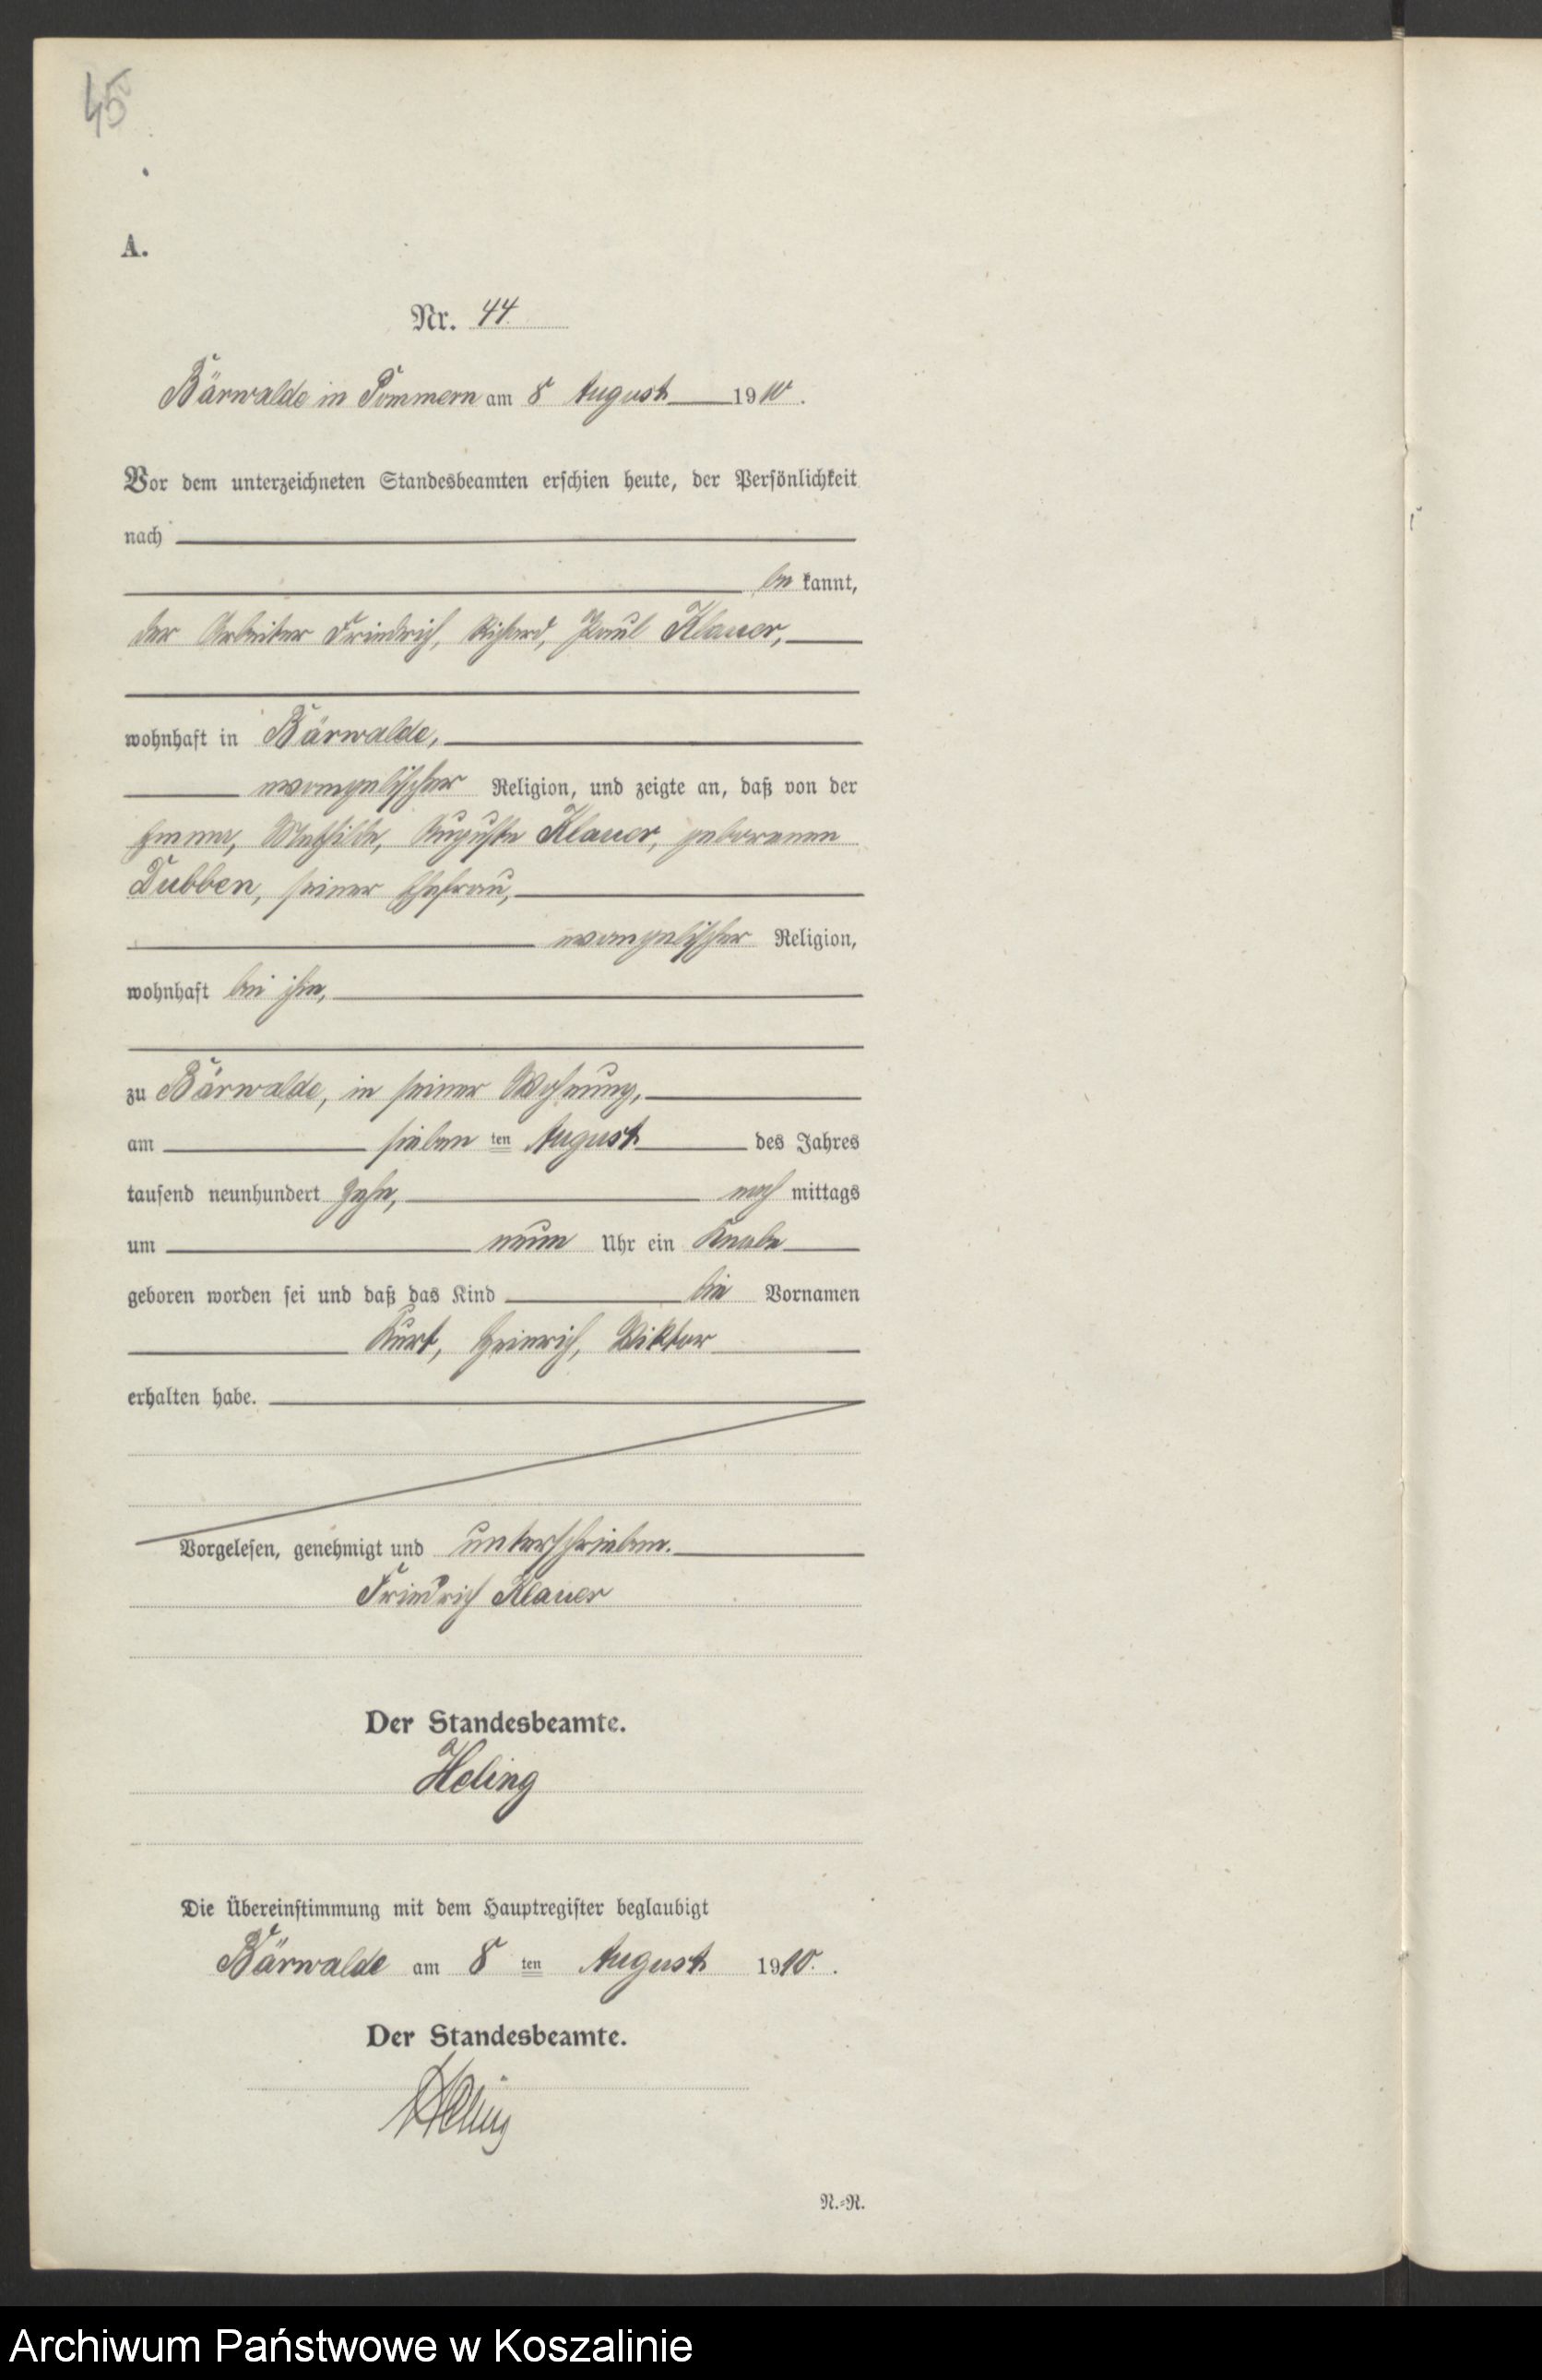 45
A.
Nr. 44
Bärwalde in Pommern am 8 August 1910.
Vor dem unterzeichneten Standesbeamten erschien heute, der Persönlichkeit
nach
be kannt,
der Arbeiter Friedrich, Richard, Paul Klauer,
wohnhaft in Bärwalde,
evangelischer Religion, und zeigte an, daß von der
Mathilde, Auguste Klauer, geborenen
Dubben, seiner Ehefrau,
evangelischer Religion,
wohnhaft bei ihm,
zu Bärwalde, in seiner Wohnung,
am sieben ten August des Jahres
tausend neunhundert zehn, nach mittags
um neun Uhr ein Knabe
geboren worden sei und daß das Kind die Vornamen
Kurt, Heinrich, Viktor
erhalten habe.
Vorgelesen, genehmigt und unterschrieben.
Friedrich Klauer
Der Standesbeamte.
Heling
Die Übereinstimmung mit dem Hauptregister beglaubigt
Bärwalde am 8 ten August 1910.
Der Standesbeamte.
Heling
N.=R.
Archiwum Państwowe w Koszalinie